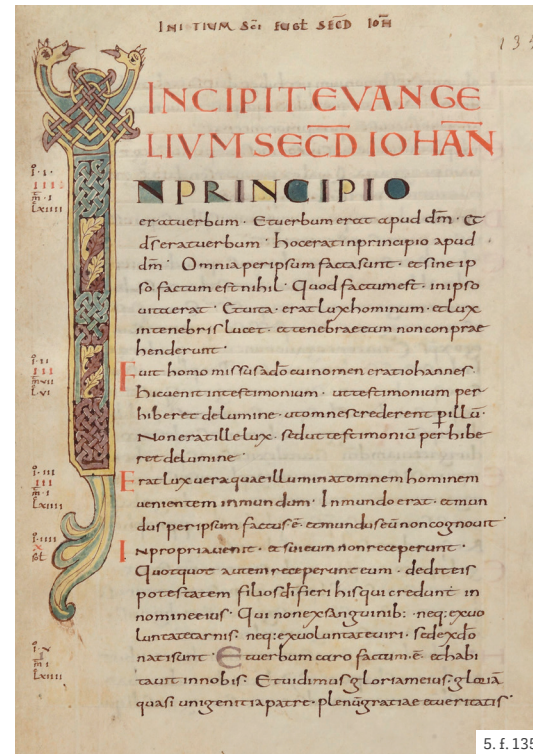 INITIUM SCI EUGL SECD IOH
135
INCIPIT EVANGE
LIVM SECD IOHAN
IN PRINCIPIO
erat uerbum · Et uerbum erat apud dm · Et
ds erat uerbum · hoc erat in principio apud
dm · Omnia per ipsum facta sunt · et sine ip
so factum est nihil · Quod factum est · in ipso
uita erat · Et uita · erat lux hominum · et lux
in tenebris lucet · et tenebrae eam non con prae
henderunt ·
Fuit homo missus a do cui nomen erat iohannes ·
hic uenit in testimonium · ut testimonium per
hiberet de lumine · ut omnes crederent p illu ·
Non erat ille lux · sed ut testimoniu perhibe
ret de lumine
Erat lux uera quae illuminat omnem hominem
uenientem in mundum · In mundo erat · et mun
dus per ipsum factus e · et mundus eu non cognouit
In propria uenit · et sui eum non receperunt ·
Quotquot autem receperunt eum · dedit eis
potestatem filios di fieri his qui credunt in
nomine eius · Qui non ex sanguinib: · neq: ex uo
luntate carnis · neq: ex uoluntate uiri · sed ex do
nati sunt · Et uerbum caro factum e · et habi
tauit in nobis · Et uidimus gloriam eius · gloria
quasi unigeniti a patre · plenu gratiae et ueritatis ·
5. f. 135